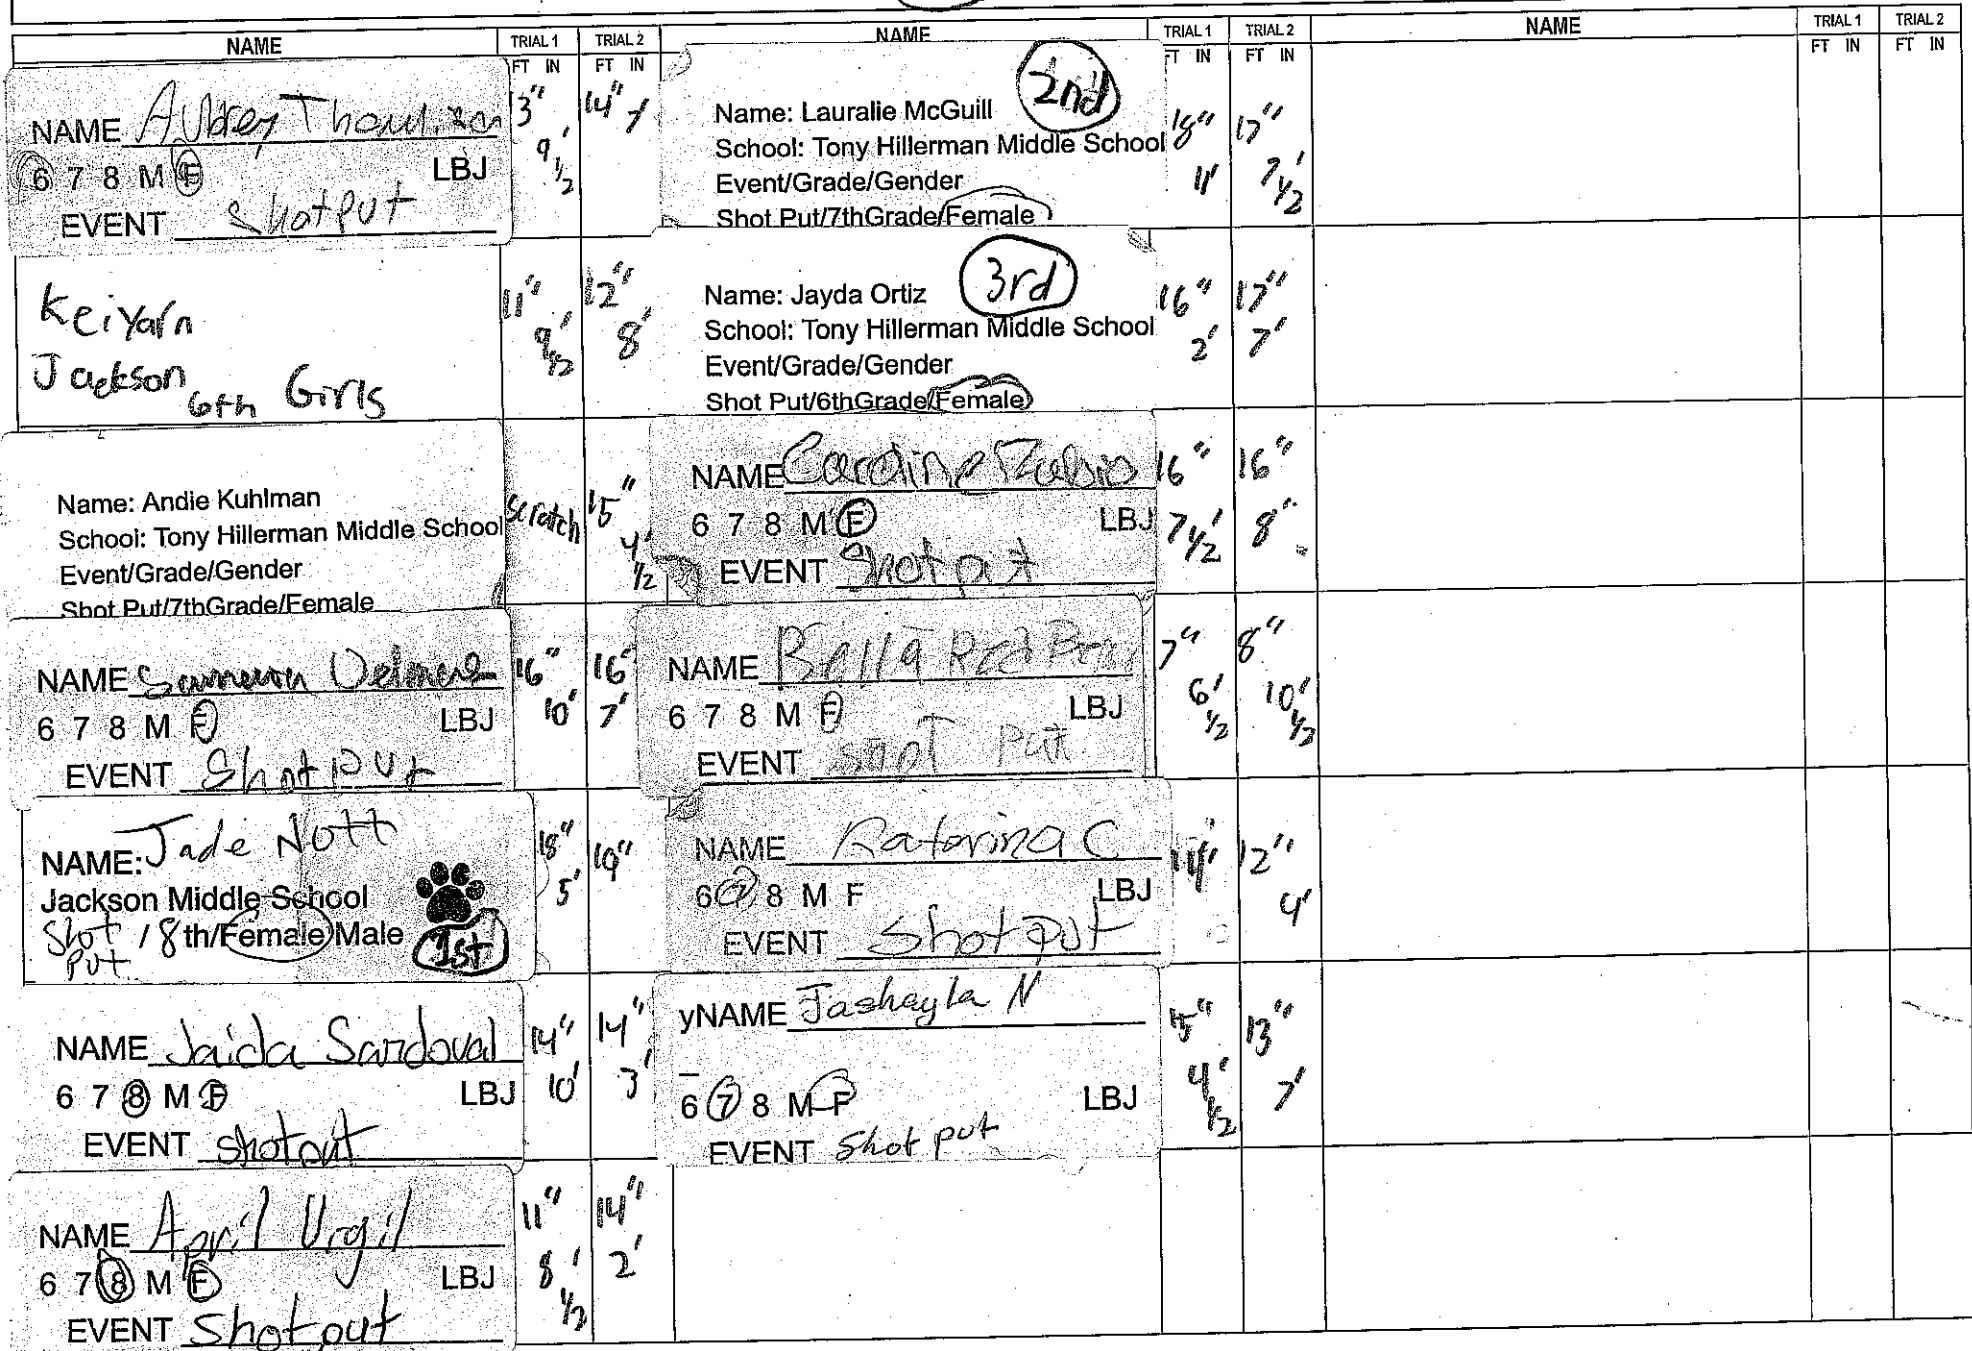 NAME TRIAL 1 TRIAL 2 NAME TRIAL 1 TRIAL 2 NAME TRIAL 1 TRIAL 2
FT IN FT IN FT IN FT IN FT IN FT IN
NAME Aubrey
6 7 8 M F LBJ
EVENT Shotput
13" 9' 1/2
14" 1'
Keiyarn
Jackson
6th Girls
11" 9' 1/2
12" 8'
Name: Andie Kuhlman
School: Tony Hillerman Middle School
Event/Grade/Gender
Shot Put/7thGrade/Female
scratch
15" 4' 1/2
NAME
6 7 8 M F LBJ
EVENT Shotput
16" 10'
16" 7'
NAME: Jade Nott
Jackson Middle School
Shot Put / 8th/Female/Male
1st
18" 5'
19"
NAME Jaida Sandoval
6 7 8 M F LBJ
EVENT shotput
14" 10'
14" 3'
NAME April Virgil
6 7 8 M F LBJ
EVENT Shotput
11" 8' 1/2
14" 2'
2nd
Name: Lauralie McGuill
School: Tony Hillerman Middle School
Event/Grade/Gender
Shot Put/7thGrade/Female
18" 11'
17" 7' 1/2
3rd
Name: Jayda Ortiz
School: Tony Hillerman Middle School
Event/Grade/Gender
Shot Put/6thGrade/Female
16" 2'
17" 7'
NAME Caroline Rubio
6 7 8 M F LBJ
EVENT Shot put
16" 7 1/2'
16" 8"
NAME Bella Red Bear
6 7 8 M F LBJ
EVENT shot put
7" 6' 1/2
8" 10' 1/2
NAME Katarina C
6 7 8 M F LBJ
EVENT shot put
11"
12" 4'
yNAME Jashayla N
6 7 8 M F LBJ
EVENT Shot put
15" 4' 1/2
13" 7'